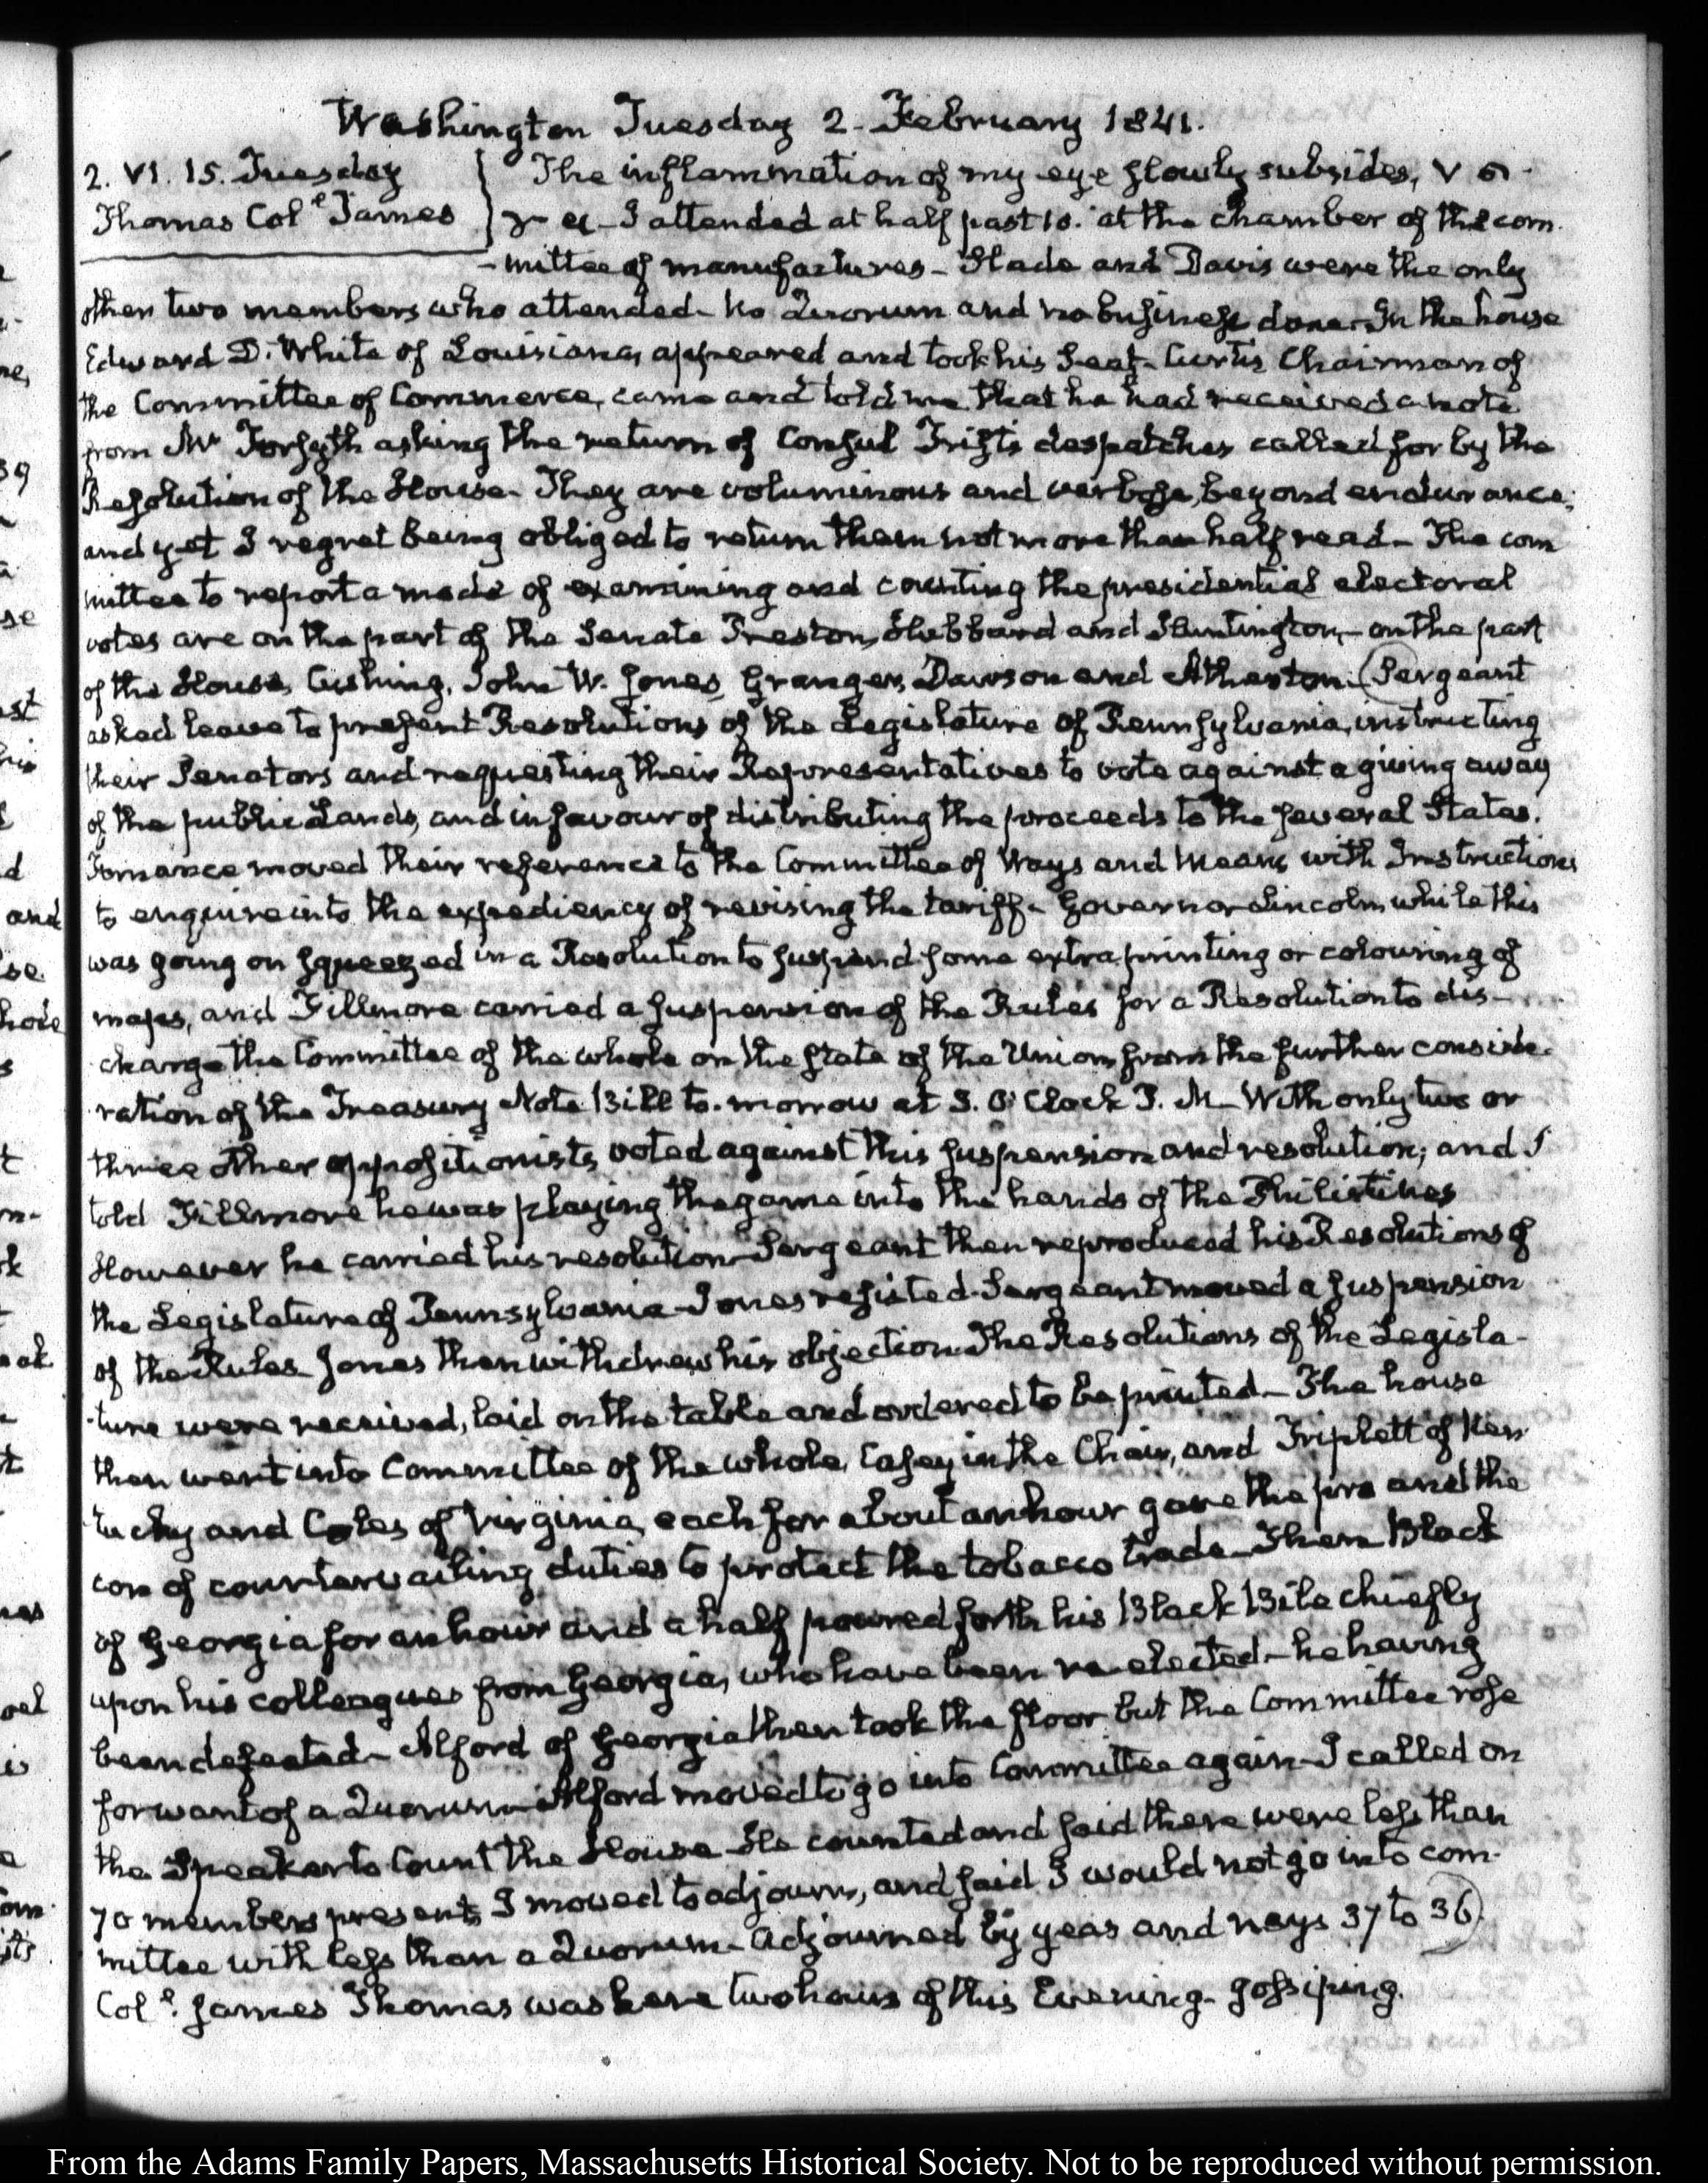 Washington Tuesday 2. February 1841.
2. VI. 15. Tuesday
Thomas Col.l James
The inflammation of my eye slowly subsides,
I attended at half past 10. at the chamber of the com
-mittee of manufactures- Slade and Davis were the only
other two members who attended- No Quorum and no business done- In the house
Edward D. White of Louisiana, appeared and took his Seat- Curtis Chairman of
the Committee of Commerce, came and told me that he had received a note
from Mr Forsyth asking the return of Consul Trist's despatches called for by the
Resolution of the House- They are voluminous and verbose, beyond endurance;
and yet I regret being obliged to return them not more than half read- The com
mittee to report a mode of examining and counting the presidential electoral
votes are on the part of the Senate Preston, Hubbard and Huntington,- on the part
of the House, Cushing, John W. Jones, Granger, Dawson and Atherton. (Sergeant
asked leave to present Resolutions of the Legislature of Pennsylvania, instructing
their Senators and requesting their Representatives to vote against a giving away
of the public Lands, and in favour of distributing the proceeds to the several States.
Fornance moved their reference to the Committee of Ways and Means with Instructions
to enquire into the expediency of revising the tariff- Governor Lincoln while this
was going on squeezed in a Resolution to suspend some extra printing or colouring of
maps, and Fillmore carried a suspension of the Rules for a Resolution to dis-
charge the Committee of the whole on the state of the Union, from the further conside-
ration of the Treasury Note Bill to-morrow at 3. O'Clock P. M- With only two or
three other oppositionists, voted against this suspension and resolution; and I
told Fillmore he was playing the game into the hands of the Philistines
However he carried his resolution- Sergeant then reproduced his Resolutions of
the Legislature of Pennsylvania- Jones resisted- Sergeant moved a suspension
of the Rules- Jones then withdrew his objection- The Resolutions of the Legisla-
-ture were received, laid on the table and ordered to be printed- The house
then went into Committee of the whole, Casey in the Chair, and Triplett of Ken-
tucky and Coles of Virginia, each for about an hour gave the pro and the
con of countervailing duties to protect the tobacco trade- Then Black
of Georgia for an hour and a half poured forth his Black Bile chiefly
upon his colleagues from Georgia, who have been re-elected- he having
been defeated- Alford of Georgia then took the floor but the Committee rose
for want of a Quorum- Alford moved to go into Committee again- I called on
the Speaker to Count the House- He counted and said there were less than
70 members present, I moved to adjourn, and said I would not go into com-
mittee with less than a Quorum- Adjourned by yeas and nays 37 to 36).
Col.l James Thomas was here two hours of this Evening- gossiping.
From the Adams Family Papers, Massachusetts Historical Society. Not to be reproduced without permission.